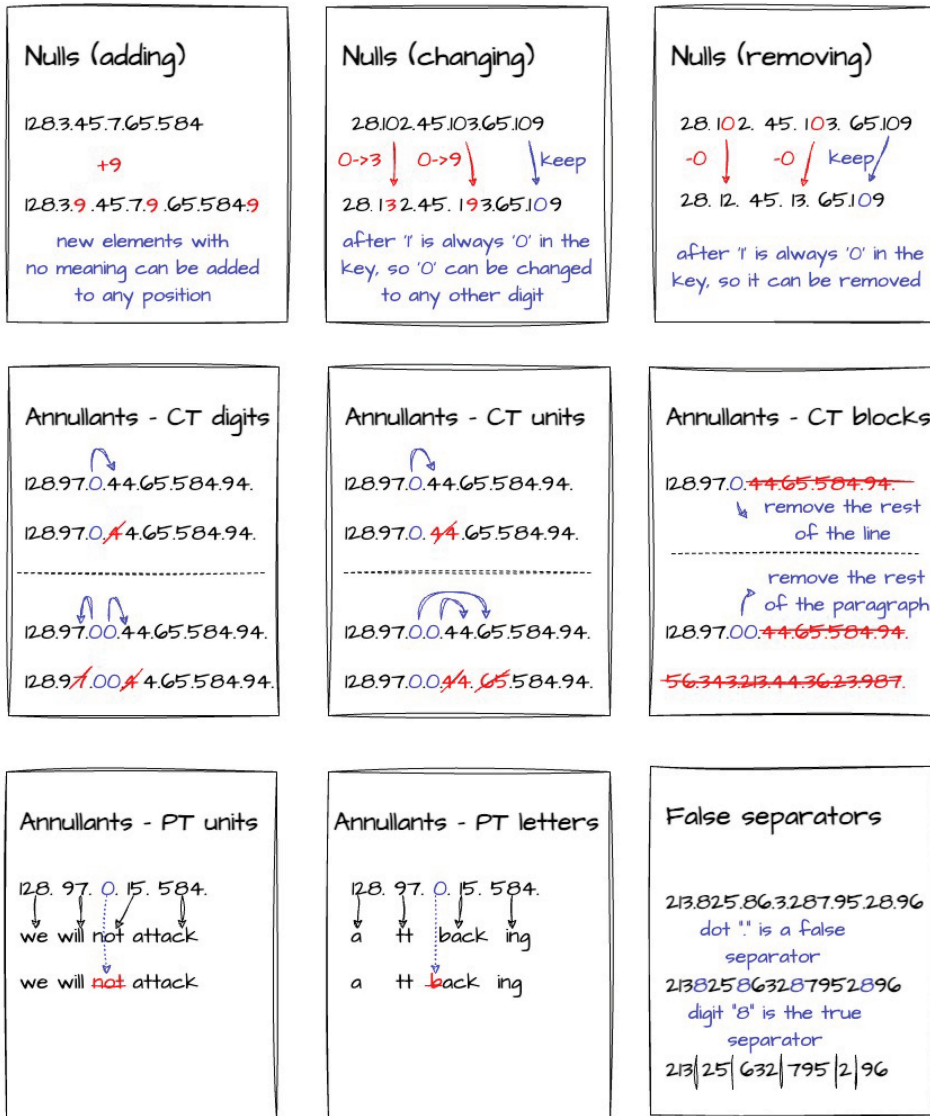 Nulls (adding)
128.3.45.7.65.584
+9
128.3.9.45.7.9.65.584.9
new elements with
no meaning can be added
to any position
Nulls (changing)
28.102.45.103.65.109
0->3 0->9 keep
28.132.45.193.65.109
after '1' is always '0' in the
key, so '0' can be changed
to any other digit
Nulls (removing)
28.102. 45. 103. 65.109
-0 -0 keep
28. 12. 45. 13. 65.109
after '1' is always '0' in the
key, so it can be removed
Annullants - CT digits
128.97.0.44.65.584.94.
128.97.0.44.65.584.94.
128.97.00.44.65.584.94.
128.97.00.44.65.584.94.
Annullants - CT units
128.97.0.44.65.584.94.
128.97.0.44.65.584.94.
128.97.0.0.44.65.584.94.
128.97.0.0.44.65.584.94.
Annullants - CT blocks
128.97.0.44.65.584.94.
remove the rest
of the line
remove the rest
of the paragraph
128.97.00.44.65.584.94.
56.343.213.44.36.23.987.
Annullants - PT units
128. 97. 0. 15. 584.
we will not attack
we will not attack
Annullants - PT letters
128. 97. 0. 15. 584.
a tt back ing
a tt back ing
False separators
213.825.86.3.287.95.28.96
dot "." is a false
separator
213825863287952896
digit "8" is the true
separator
213|25|632|795|2|96